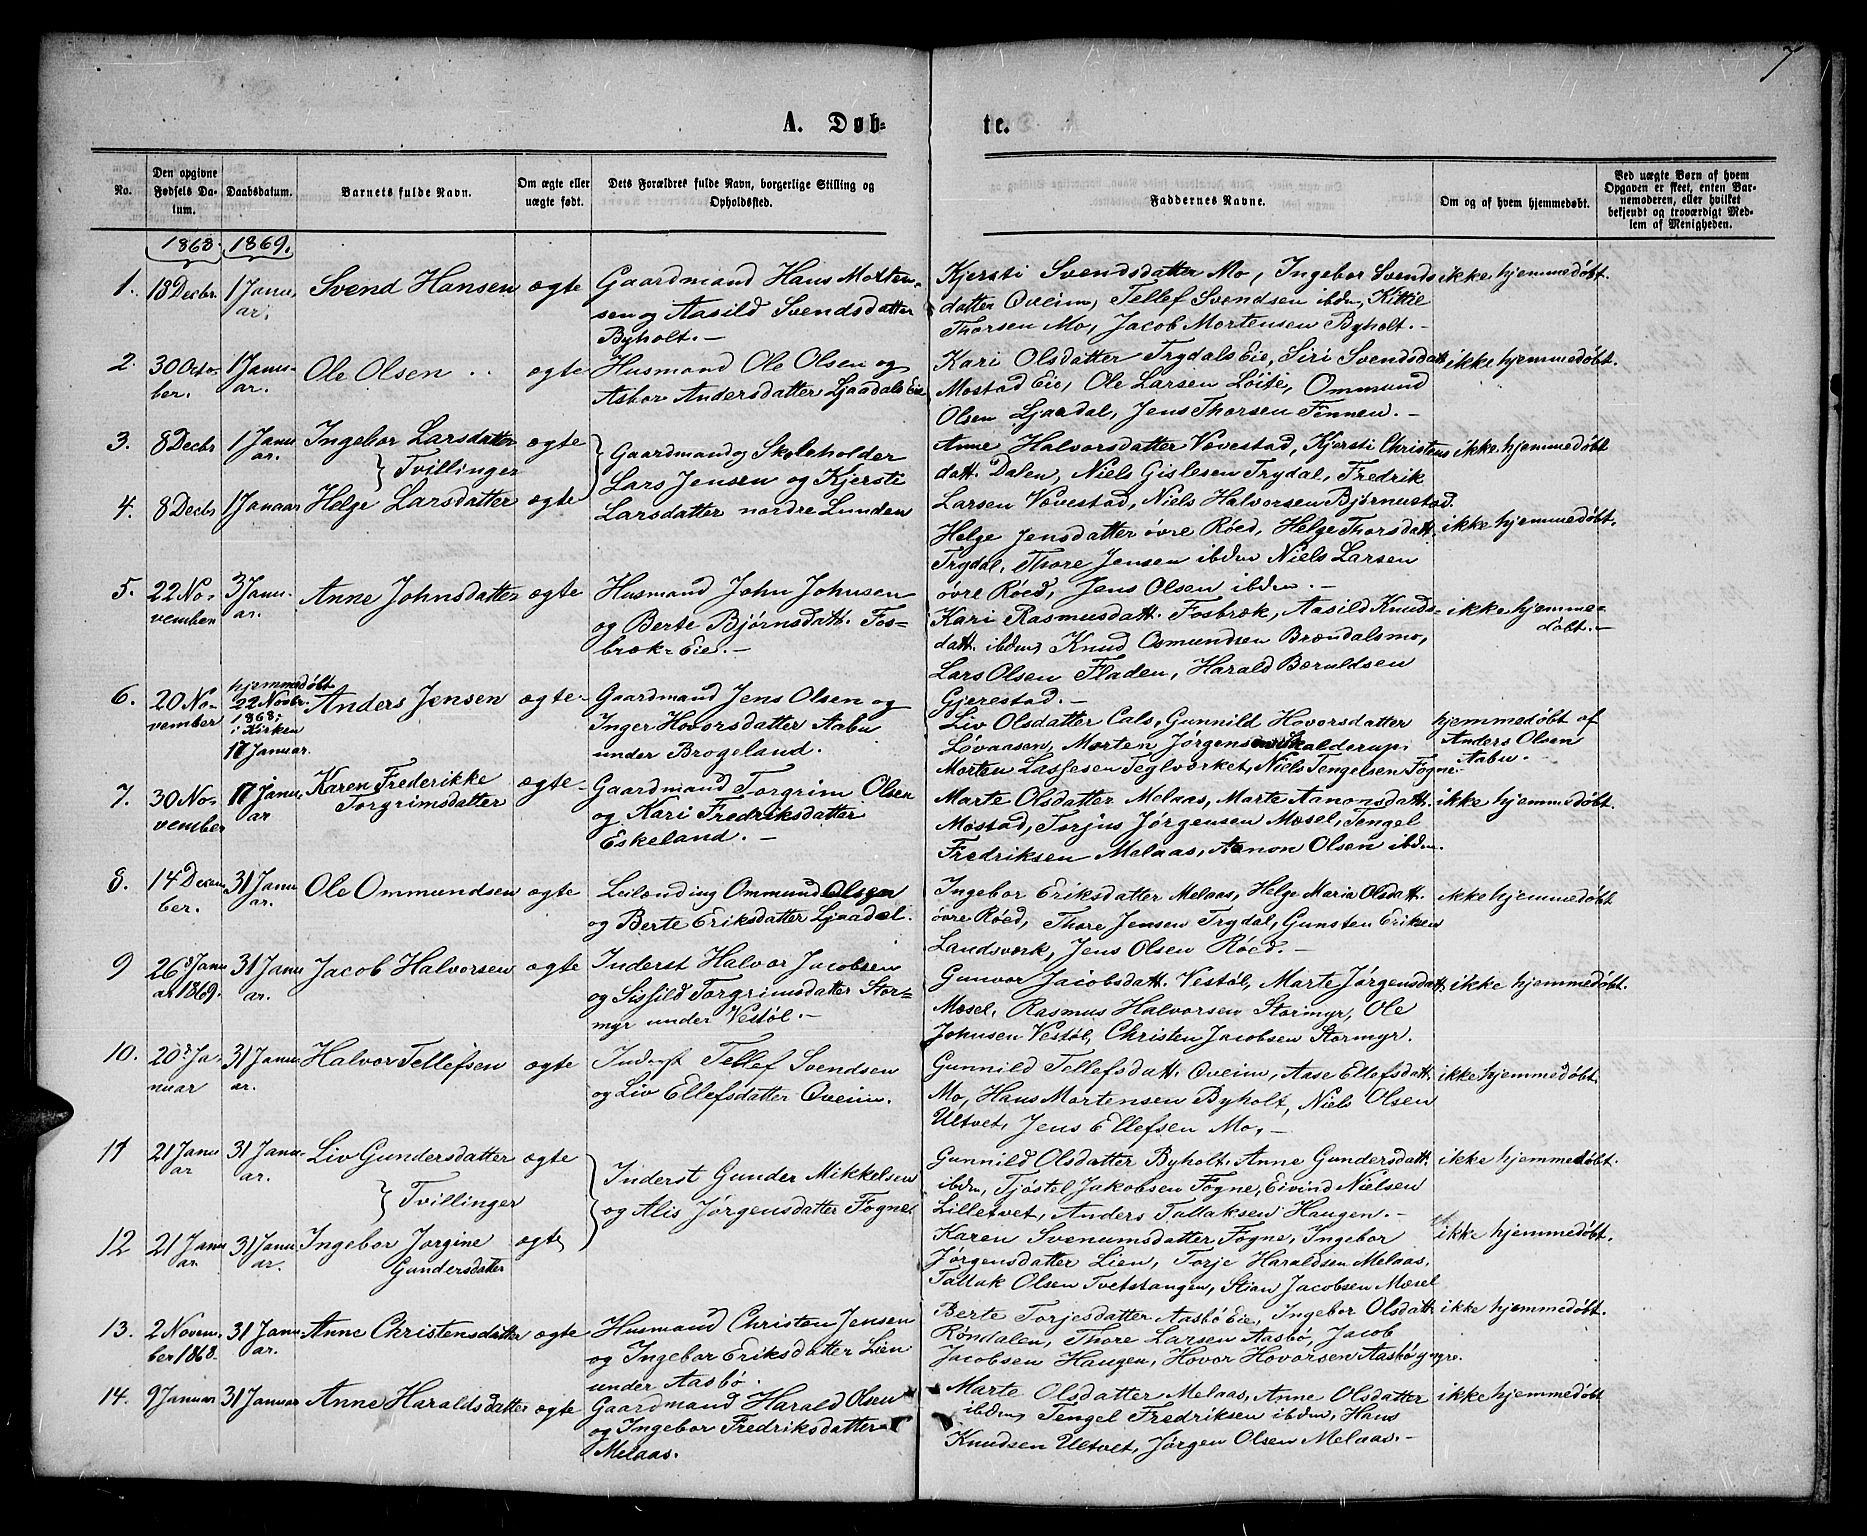 7
A. Døb-
te.
No.
Den opgivne Fødsels Da-
tum.
Daabsdatum.
Barnets fulde Navn.
Om ægte eller
uægte født.
Dets Forældres fulde Navn, borgerlige Stilling og
Opholdssted.
Faddernes Navne.
Om og af hvem hjemmedøbt.
Ved uægte Børn af hvem
Opgaven er skeet, enten Bar-
nemoderen, eller hvilket
bekjendt og troværdigt Med-
lem af Menigheden.
1868. 1869.
1. 13 Decbr. 1 Janu-
ar.
Svend Hansen
ægte
Gaardmand Hans Morten-
sen og Aasild Svendsdatter
Byholt.-
Kjersti Svendsdatter Mo, Ingebor Svends-
datter Øveim, Tellef Svendsen ibdm, Kittil
Thorsen Mo, Jacob Mortensen Byholt.-
ikke hjemmedøbt.
2. 30 Octo-
ber.
1 Janu-
ar.
Ole Olsen
ægte
Husmand Ole Olsen og
Asbor Andersdatter Ljaadals Eie
Kari Olsdatter Trydals Eie, Siri Svendsdatt.
Mostad Eie, Ole Larsen Løite, Ommund
Olsen Ljaadal, Jens Thorsen Finnen.-
ikke hjemmedøbt.
3. 8 Decbr
1 Janu-
ar.
Ingebor Larsdatter
Tvillinger
ægte
Gaardmand og Skoleholder
Lars Jensen og Kjersti
Larsdatter nordre Lunden
Anne Halvorsdatter Vovestad, Kjersti Christens-
datt. Dalen, Niels Gislesen Trydal, Fredrik
Larsen Vovestad, Niels Halvorsen Bjørnestad.
ikke hjemmedøbt
4. 8 Decbr
1 Januar
Helge Larsdatter
ægte
Helge Jensdatter øvre Røed, Helge Thorsdatt.
Trydal, Thore Jensen ibdm Niels Larsen
øvre Røed, Jens Olsen ibdm.-
ikke hjemmedøbt.
5. 22 No-
vember
3 Janu-
ar.
Anne Johnsdatter
ægte
Husmand John Johnsen
og Berte Bjørnsdatt. Fos-
bræk-Eie.-
Kari Rasmusdatt. Fosbræk, Aasild Knuds-
datt. ibdm, Knud Osmundsen Brændalsmo,
Lars Olsen Fladen, Harald Beruldsen
Gjerestad.-
ikke hjemme-
døbt.-
6. 20 No-
vember
hjemmedøbt
22 Novbr.
1868;
i Kirken
17 Januar.
Anders Jensen
ægte-
Gaardmand Jens Olsen og
Inger Hovorsdatter Aabu
under Brogeland.
Liv Olsdatter Cals, Gunnild Hovorsdatter
Løvaasen, Morten Jørgensen Skalderup,
Morten Lassesen Teglværket, Niels Tengelsen Fogne.
hjemmedøbt af
Anders Olsen
Aabu.-
7. 30 No-
vember
17 Janu-
ar
Karen Frederikke
Torgrimsdatter
ægte-
Gaardmand Torgrim Olsen
og Kari Fredriksdatter
Eskeland.-
Marte Olsdatter Melaas, Marte Aanonsdatt.
Møstad, Torjus Jørgensen Mæsel, Tengel
Fredriksen Melaas, Aanon Olsen ibdm.
ikke hjemmedøbt.
8. 14 Decem-
ber.
31 Janu-
ar.
Ole Ommundsen
ægte
Leilending Ommund Olsen
og Berte Eriksdatter Ljaadal.
Ingebor Eriksdatter Melaas, Helge Maria Olsdatt.
øvre Røed, Thore Jensen Trydal, Gunsten Eriksen
Landsværk, Jens Olsen Røed.-
ikke hjemmedøbt
9 26de Janu-
ar 1869.
31 Janu-
ar.
Jacob Halvorsen
ægte
Inderst Halvor Jacobsen
og Sissild Torgrimsdatter Stor-
myr under Vestøl.-
Gunvor Jacobsdatt. Vestøl, Marte Jørgensdatt
Mæsel, Rasmus Halvorsen Stormyr, Ole
Johnsen Vestøl, Christen Jacobsen Stormyr.
ikke hjemmedøbt.
10. 20de Ja-
nuar
31 Janu-
ar.
Halvor Tellefsen
ægte
Inderst Tellef Svendsen
og Liv Ellefsdatter Øveim.
Gunnild Tellefsdatt. Øveim, Aase Ellefsdatt.
Mo, Hans Mortensen Byholt, Niels Olsen
Ultvet, Jens Ellefsen Mo.-
ikke hjemmedøbt
11 21 Janu-
ar
31 Janu-
ar.
Liv Gundersdatter
Tvillinger
ægte
Inderst Gunder Mikkelsen
og Alis Jørgensdatter Fogne.
Gunnild Olsdatter Byholt, Anne Gundersdatt.
ibdm, Tjøstel Jakobsen Fogne, Eivind Nielsen
Lilletvet, Anders Tallaksen Haugen.-
ikke hjemmedøbt.
12 21 Janu-
ar
31 Janu-
ar.
Ingebor Jørgine
Gundersdatter
ægte
Karen Svenumsdatter Fogne, Ingebor
Jørgensdatter Lien, Torje Haraldsen Melaas,
Tallak Olsen Tvetstangen, Stian Jacobsen Mæsel
ikke hjemmedøbt.
13. 2 Novem-
ber 1868.
31 Janu-
ar.
Anne Christensdatter
ægte
Husmand Christen Jensen
og Ingebor Eriksdatter Lien
under Aasbø.
Berte Torjesdatter Aasbø Eie, Ingebor Olsdatt.
Røndalen, Thore Larsen Aasbø, Jacob
Jacobsen Haugen, Hovor Hovorsen Aasbø yngre.
ikke hjemmedøbt.
14. 9 Januar
31 Januar
Anne Haraldsdatter
ægte
Gaardmand Harald Olsen
og Ingebor Fredriksdatter
Melaas.
Marte Olsdatter Melaas, Anne Olsdatter
ibdm, Tengel Fredriksen ibdm, Hans
Knudsen Ultvet, Jørgen Olsen Melaas.-
ikke hjemmedøbt